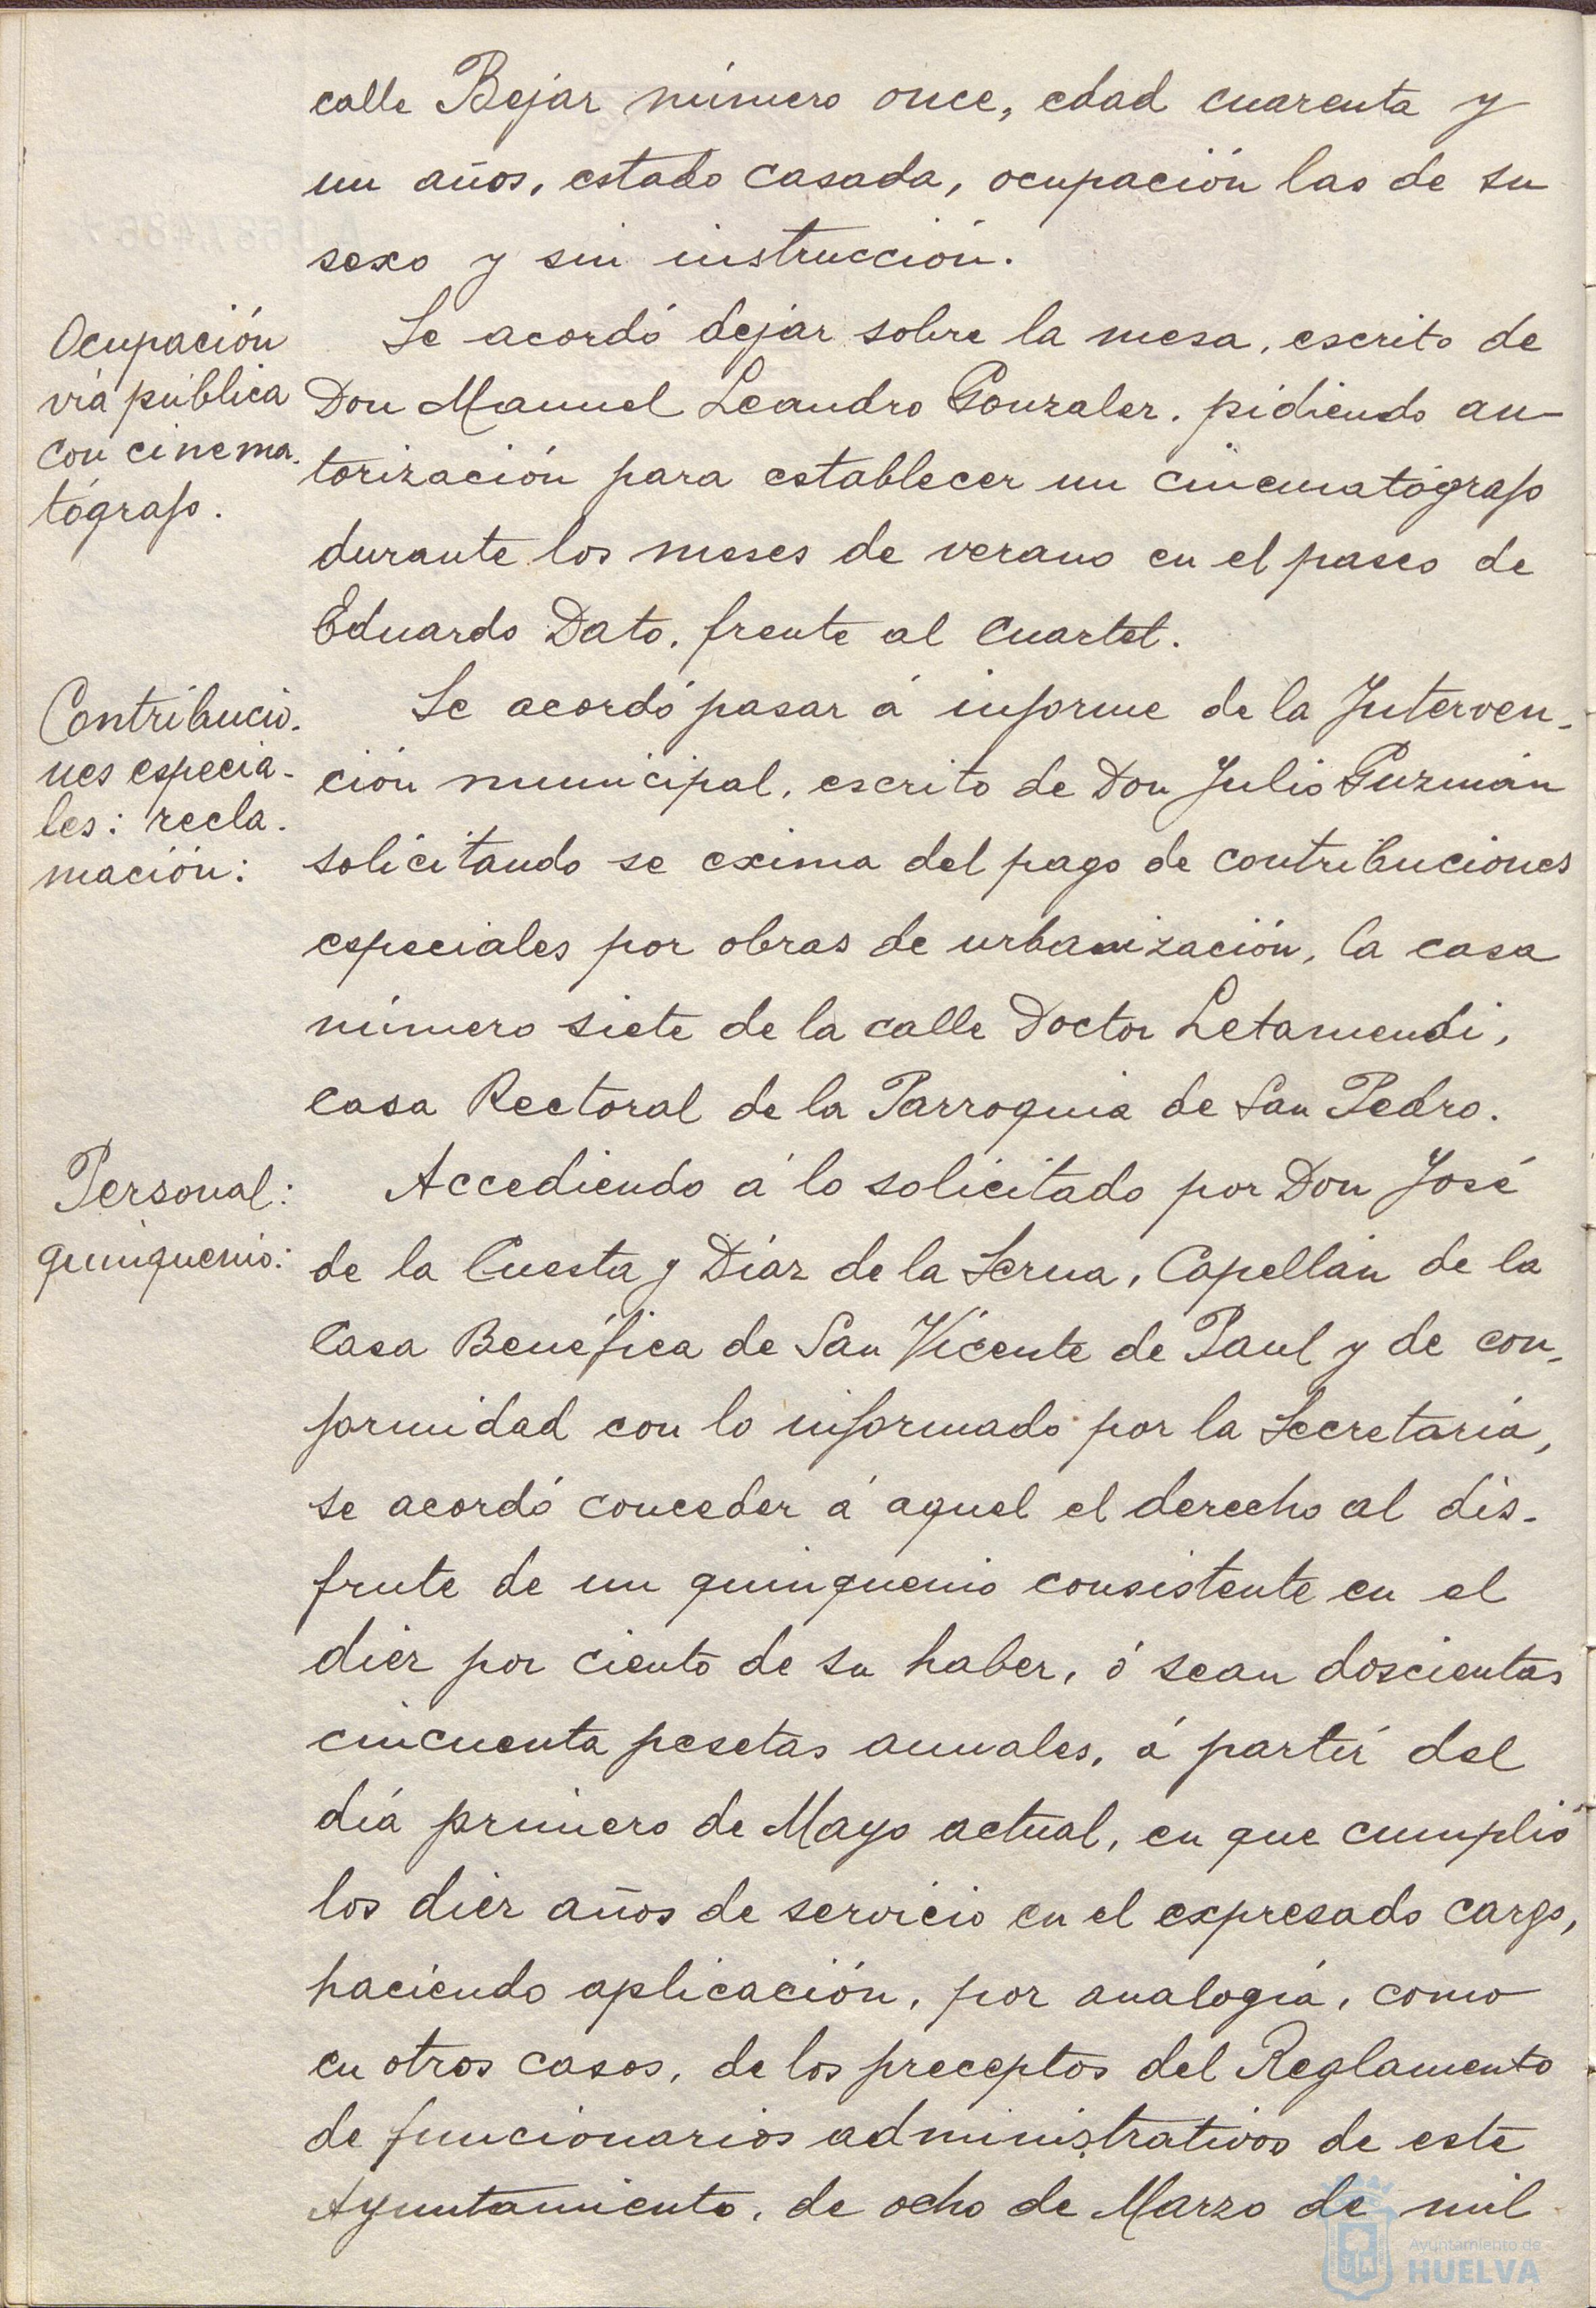 calle Bejar número once, edad cuarenta y
un años, estado casada, ocupación las de su
sexo y sin instrucción.
Ocupación
vía pública
con cinema.
tógrafo.
Se acordó dejar sobre la mesa, escrito de
Don Manuel Leandro Gonzalez, pidiendo au-
torización para establecer un cinematógrafo
durante los meses de verano en el paseo de
Eduardo Dato, frente al Cuartel.
Contribucio.
nes especia-
les: recla.
mación:
Se acordó pasar á informe de la Interven-
ción municipal, escrito de Don Julio Guzmán
solicitando se exima del pago de contribuciones
especiales por obras de urbanización, la casa
número siete de la calle Doctor Letamendi,
casa Rectoral de la Parroquia de San Pedro.
Personal:
quinquenio:
Accediendo á lo solicitado por Don José
de la Cuesta y Díaz de la Serna, Capellán de la
Casa Benéfica de San Vicente de Paul y de con-
formidad con lo informado por la Secretaría,
se acordó conceder á aquel el derecho al dis-
frute de un quinquenio consistente en el
diez por ciento de su haber, ó sean doscientas
cincuenta pesetas anuales, á partir del
día primero de Mayo actual, en que cumplió
los diez años de servicio en el expresado cargo,
haciendo aplicación, por analogía, como
en otros casos, de los preceptos del Reglamento
de funcionarios administrativos de este
Ayuntamiento, de ocho de Marzo de mil
Ayuntamiento de
HUELVA